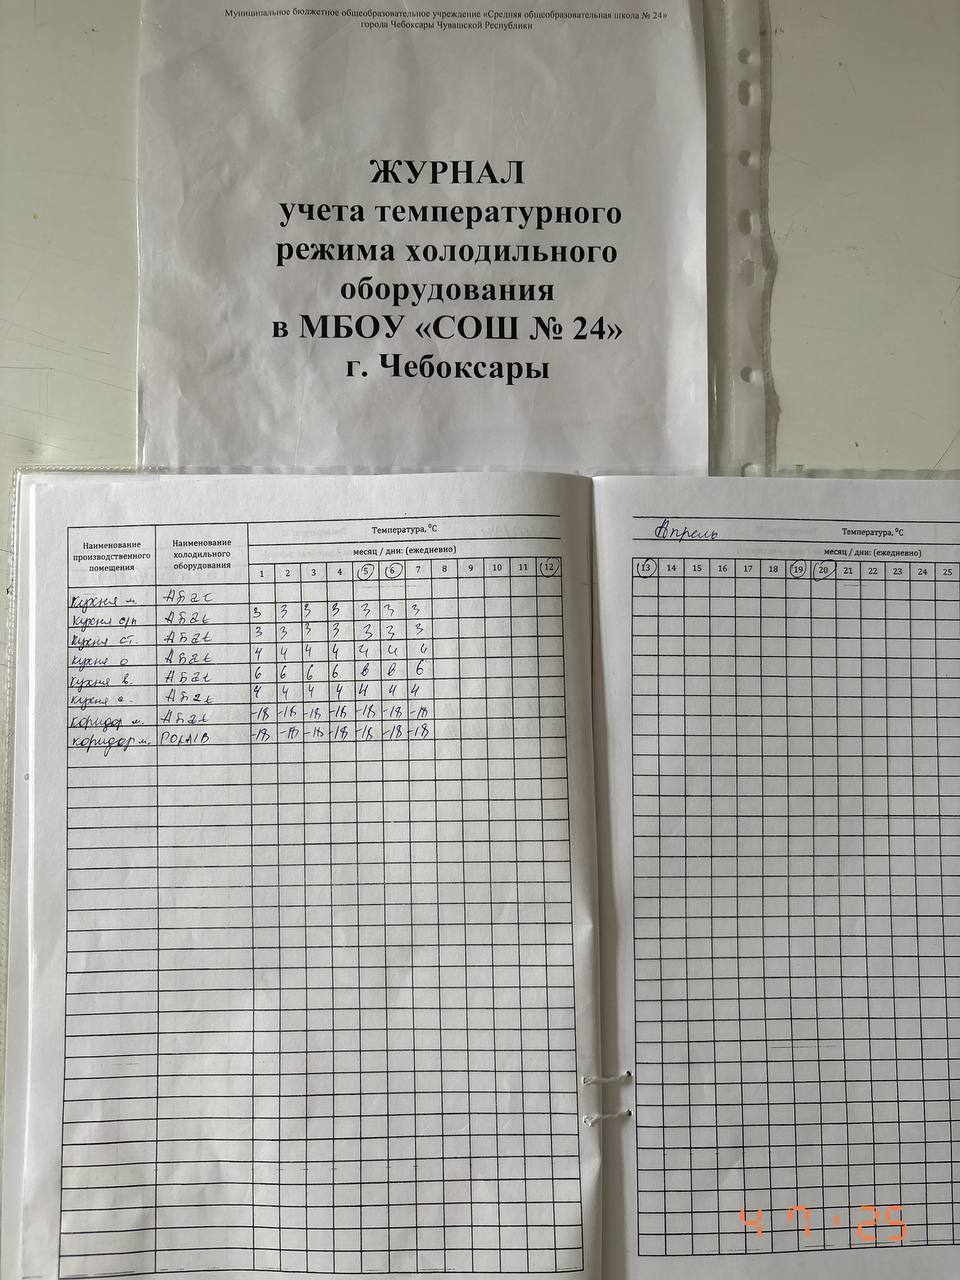 Муниципальное бюджетное общеобразовательное учреждение «Средняя общеобразовательная школа № 24»
города Чебоксары Чувашской Республики
ЖУРНАЛ
учета температурного
режима холодильного
оборудования
в МБОУ «СОШ № 24»
г. Чебоксары
Наименование производственного помещения
Наименование холодильного оборудования
Температура, ⁰С
месяц / дни: (ежедневно)
1 2 3 4 5 6 7 8 9 10 11 12
Кухня м. Абат
Кухня с/п Абат 3 3 3 3 3 3 3
Кухня ст. Абат 3 3 3 3 3 3 3
Кухня о Абат 4 4 4 4 4 4 4
Кухня в. Абат 6 6 6 6 6 6 6
Кухня Абат 4 4 4 4 4 4 4
коридор м. Абат -18 -18 -18 -18 -18 -18 -18
коридор м. -18 -18 -18 -18 -18 -18 -18
Апрель
Температура, ⁰С
месяц / дни: (ежедневно)
13 14 15 16 17 18 19 20 21 22 23 24 25
4 7 '25